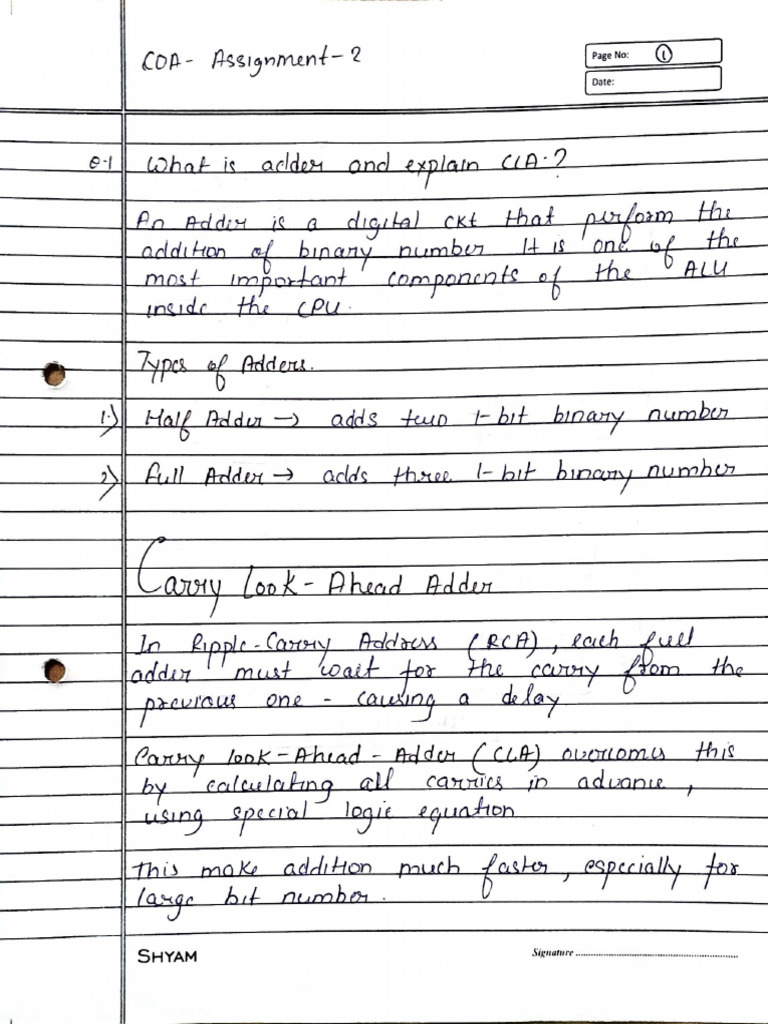 COA- Assignment-2
Page No: 1
Date:
Q-1 What is adder and explain CLA.?
An Adder is a digital ckt that perform the
addition of binary number It is one of the
most important components of the ALU
inside the CPU.
Types of Adders.
1.) Half Adder → adds two 1-bit binary number
2.) Full Adder → adds three 1-bit binary number
Carry Look-Ahead Adder
In Ripple-Carry Address (RCA), each full
adder must wait for the carry from the
previous one - causing a delay
Carry look-Ahead-Adder (CLA) overcomes this
by calculating all carries in advance,
using special logic equation
This make addition much faster, especially for
large bit number.
SHYAM
Signature